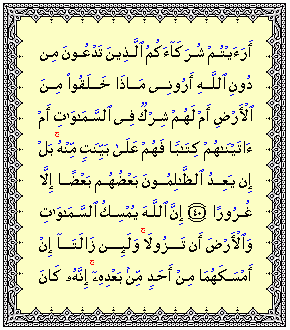 أَرَءَيْتُمْ شُرَكَآءَكُمُ ٱلَّذِينَ تَدْعُونَ مِن
دُونِ ٱللَّهِ أَرُونِى مَاذَا خَلَقُوا۟ مِنَ
ٱلْأَرْضِ أَمْ لَهُمْ شِرْكٌ فِى ٱلسَّمَٰوَٰتِ أَمْ
ءَاتَيْنَٰهُمْ كِتَٰبًا فَهُمْ عَلَىٰ بَيِّنَتٍ مِّنْهُ ۚ بَلْ
إِن يَعِدُ ٱلظَّٰلِمُونَ بَعْضُهُم بَعْضًا إِلَّا
غُرُورًا ﴿٤٠﴾ إِنَّ ٱللَّهَ يُمْسِكُ ٱلسَّمَٰوَٰتِ
وَٱلْأَرْضَ أَن تَزُولَا ۚ وَلَئِن زَالَتَآ إِنْ
أَمْسَكَهُمَا مِنْ أَحَدٍ مِّنۢ بَعْدِهِۦٓ ۚ إِنَّهُۥ كَانَ